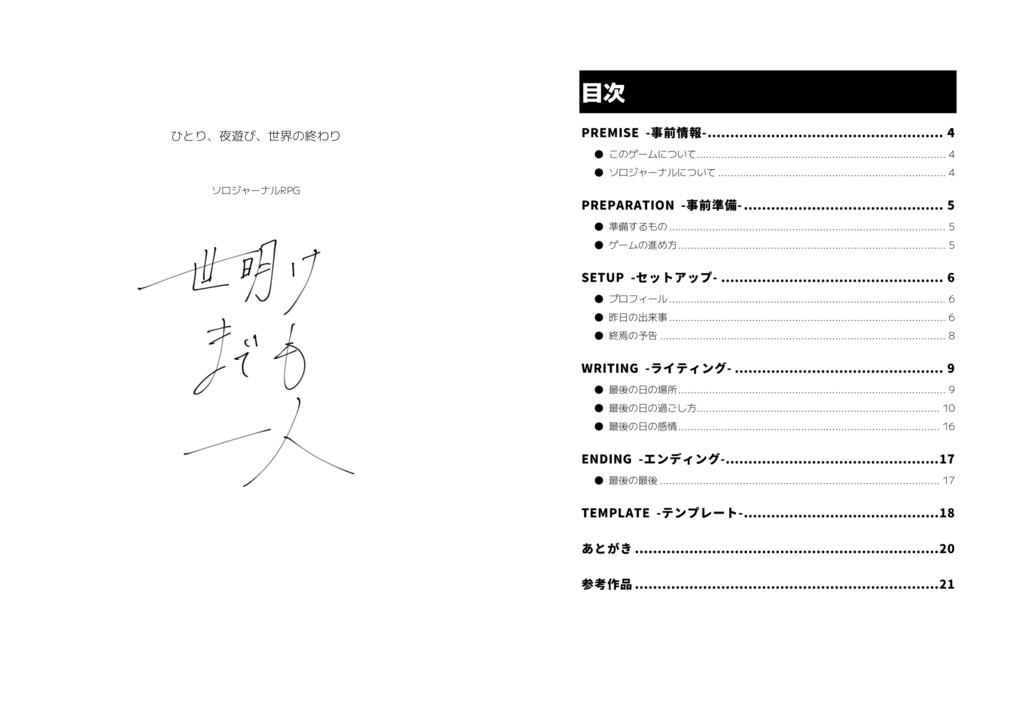 ひとり、夜遊び、世界の終わり
ソロジャーナルRPG
世明け
までも
一人
目次
PREMISE -事前情報- 4
● このゲームについて 4
● ソロジャーナルについて 4
PREPARATION -事前準備- 5
● 準備するもの 5
● ゲームの進め方 5
SETUP -セットアップ- 6
● プロフィール 6
● 昨日の出来事 6
● 終焉の予告 8
WRITING -ライティング- 9
● 最後の日の場所 9
● 最後の日の過ごし方 10
● 最後の日の感情 16
ENDING -エンディング- 17
● 最後の最後 17
TEMPLATE -テンプレート- 18
あとがき 20
参考作品 21